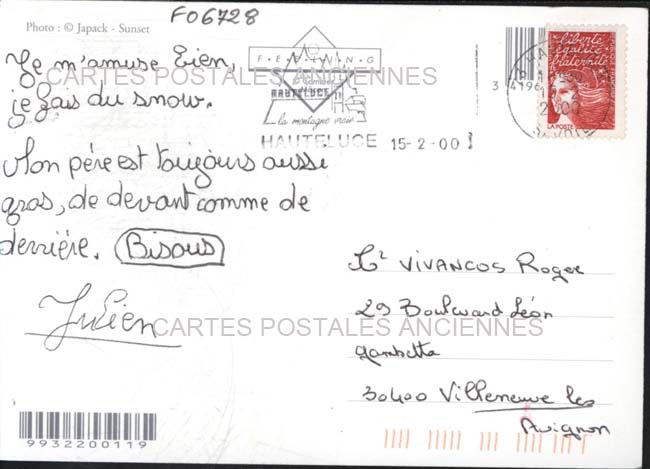 Photo : © Japack - Sunset
F06728
Je m'amuse bien,
je fais du snow.
Mon père est toujours aussi
gros, de devant comme de
derrière. Bisous
Julien
FEELING
HAUTELUCE
la montagne vraie
HAUTELUCE 15-2-00
liberté
égalité
fraternité
LA POSTE
VIVANCOS Roger
29 Boulevard Léon
gambetta
30400 Villeneuve les
Avignon
9932200119
CARTES POSTALES ANCIENNES
CARTES POSTALES ANCIENNES